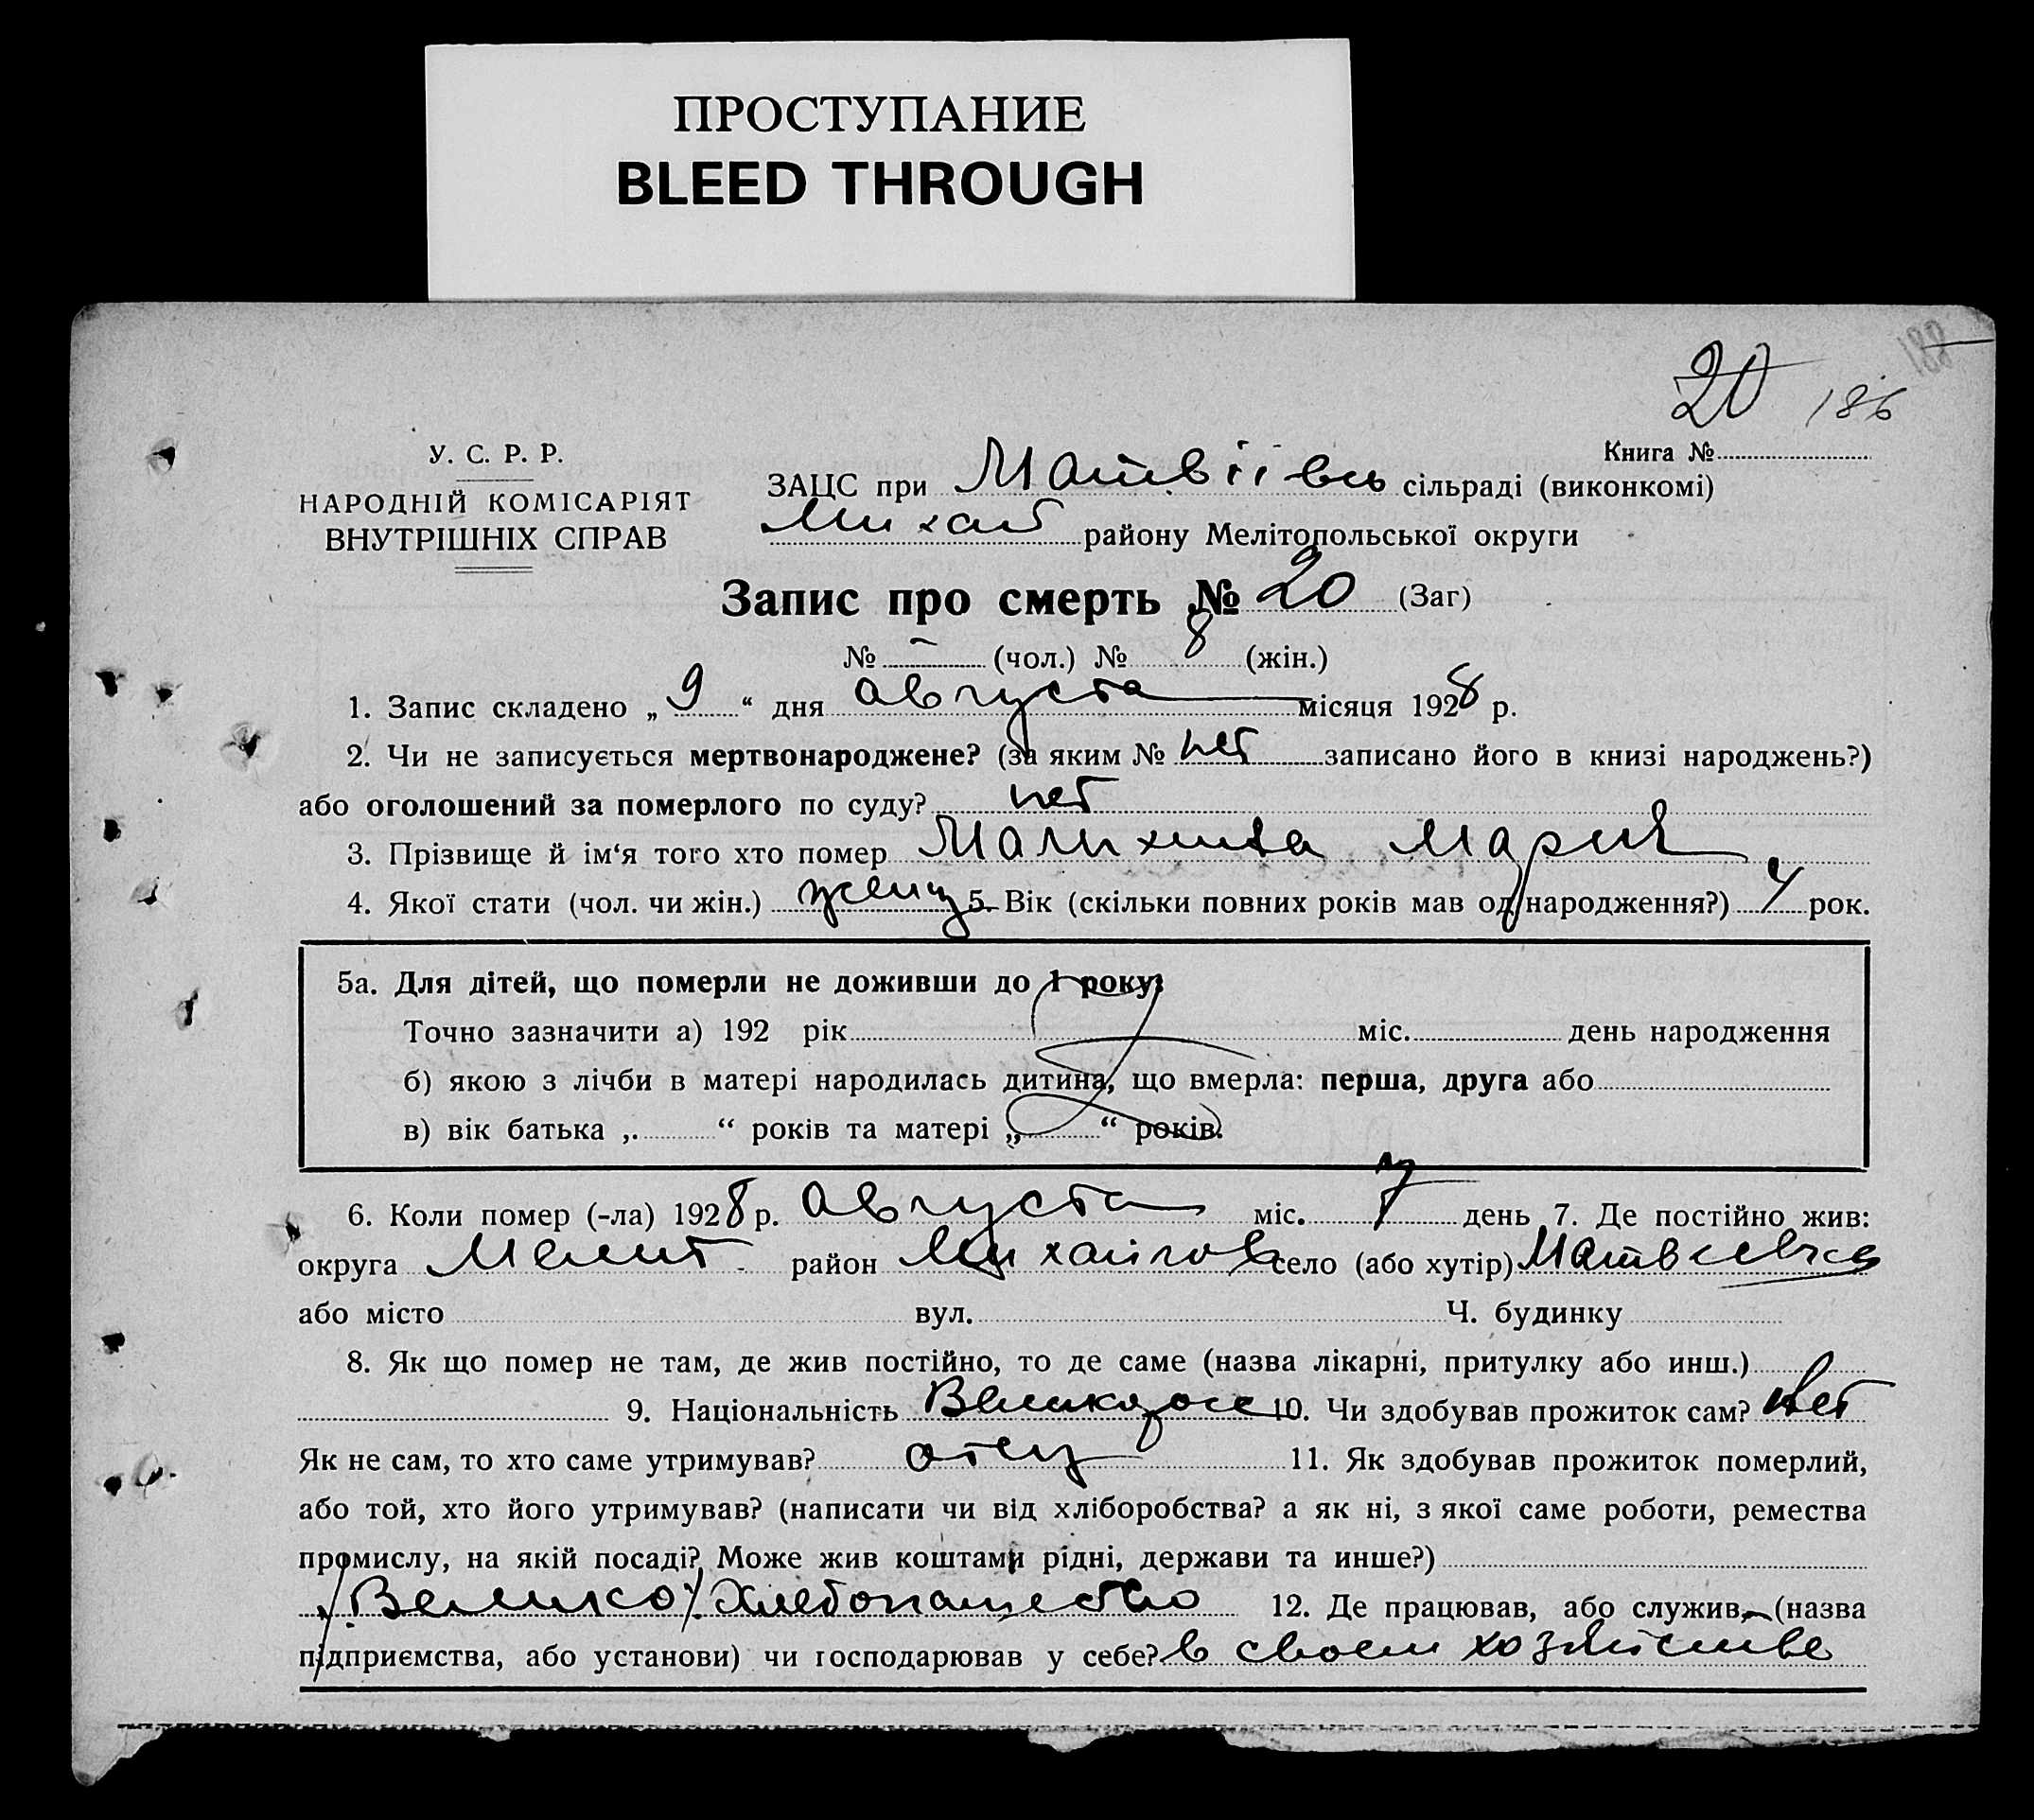 ПРОСТУПАНИЕ
BLEED THROUGH
188
20 186
Книга №
У. С. Р. Р.
НАРОДНІЙ КОМІСАРІЯТ
ВНУТРІШНІХ СПРАВ
ЗАЦС при Матвіївс сільраді (виконкомі)
Михай району Мелітопольської округи
Запис про смерть № 20 (Заг)
№ — (чол.) № 8 (жін.)
1. Запис складено „ 9 “ дня августа місяця 1928 р.
2. Чи не записується мертвонароджене? (за яким № нет записано його в книзі народжень?)
або оголошений за померлого по суду? нет
3. Прізвище й ім‘я того хто помер Малихина Мария
4. Якої стати (чол. чи жін.) женщ 5. Вік (скільки повних років мав од народження?) 4 рок.
5а. Для дітей, що померли не доживши до 1 року:
Точно зазначити а) 192 рік міс. день народження
б) якою з лічби в матері народилась дитина, що вмерла: перша, друга або
в) вік батька „ “ років та матері „ “ років.
6. Коли помер (-ла) 1928 р. августа міс. 7 день 7. Де постійно жив:
округа Мелит район Михайлов село (або хутір) Матвеевка
або місто вул. Ч. будинку
8. Як що помер не там, де жив постійно, то де саме (назва лікарні, притулку або инш.)
9. Національність Великорос 10. Чи здобував прожиток сам? нет
Як не сам, то хто саме утримував? отец 11. Як здобував прожиток померлий,
або той, хто його утримував? (написати чи від хліборобства? а як ні, з якої саме роботи, ремества
промислу, на якій посаді? Може жив коштами рідні, держави та инше?)
/Велико/ Хлебопашество 12. Де працював, або служив, (назва
підприємства, або установи) чи господарював у себе? в своем хозяйстве